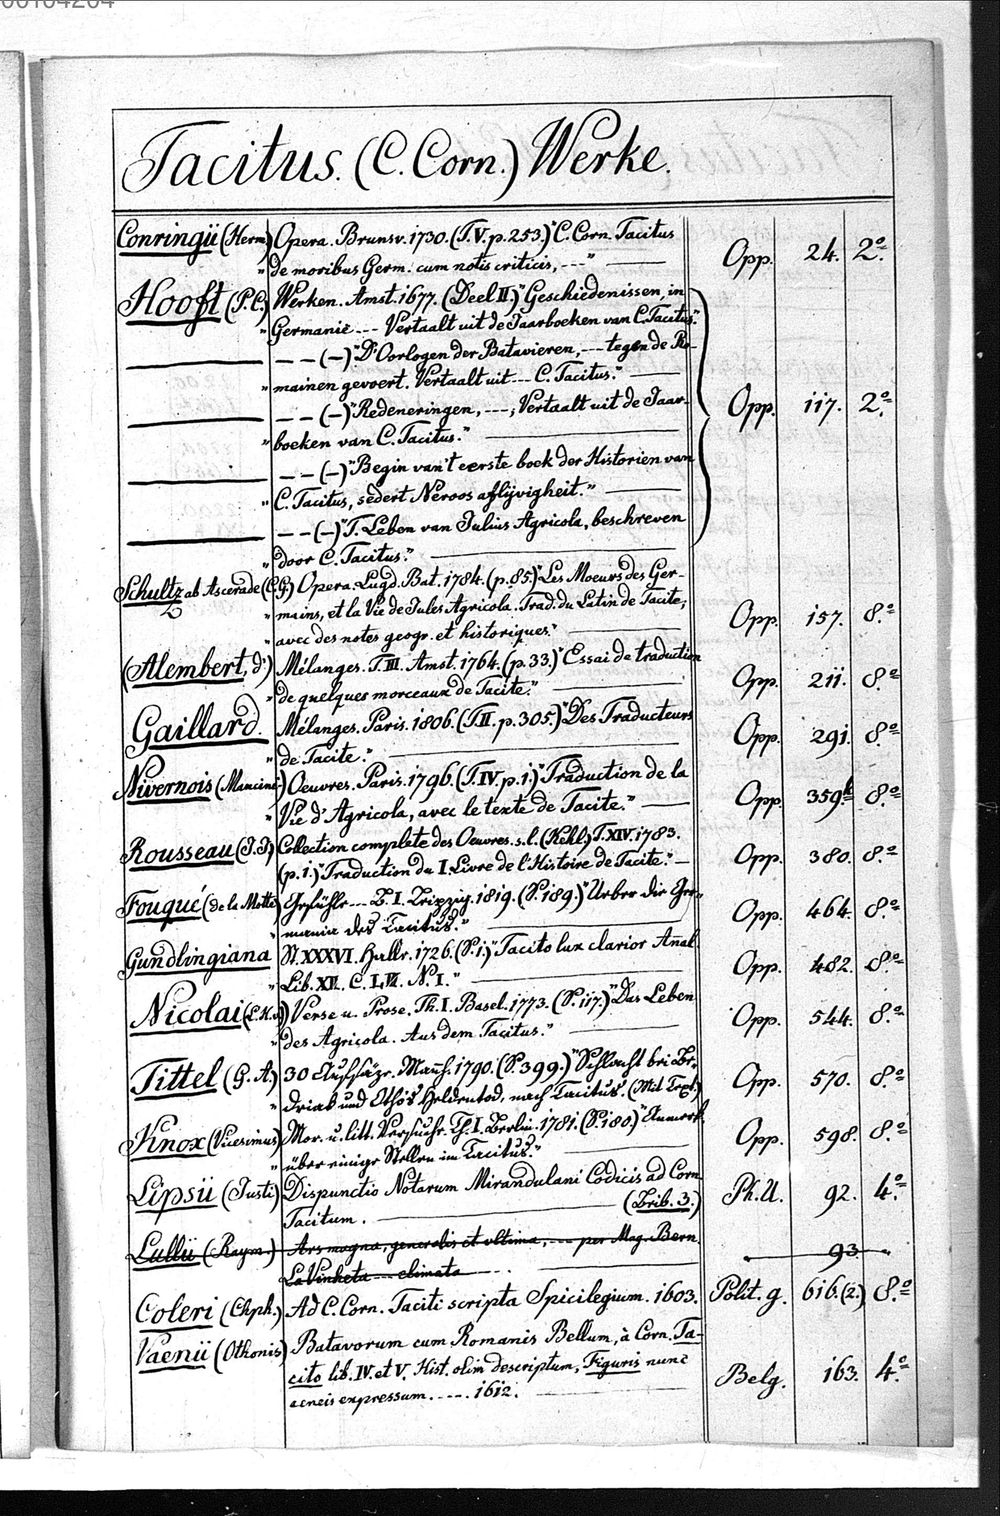 Tacitus. (C. Corn.) Werke.
Conringii (Herm.) Opera. Brunsv. 1730. (T. V. p. 253.) "C. Corn. Tacitus
" de moribus Germ. cum notis criticis, ---" Opp. 24. 2o.
Hooft (P. C.) Werken. Amst. 1677. (Deel II.) "Geschiedenissen, in
" Germanië --- Vertaalt uit de Jaarboeken van C. Tacitus."
— — (—) "D' Oorlogen der Batavieren, --- tegen de Ro-
" mainen gevoert. Vertaalt uit --- C. Tacitus."
— — (—) "Redeneringen, ---, Vertaalt uit de Jaar- Opp. 117. 2o.
" boeken van C. Tacitus."
— — (—) "Begin van't eerste boek der Historien van
" C. Tacitus, sedert Neroos aflijvigheit."
— — (—) "T. Leben van Julius Agricola, beschreven
" door C. Tacitus."
Schultz ab Ascerade (C. G.) Opera. Lugd. Bat. 1784. (p. 85.) "Les Moeurs des Ger-
" mains, et la Vie de Jules Agricola. Trad. du Latin de Tacite,
" avec des notes geogr. et historiques." Opp. 157. 8o.
(Alembert, d') Mélanges. T. III. Amst. 1764. (p. 33.) "Essai de traduction
" de quelques morceaux de Tacite." Opp. 211. 8o.
Gaillard. Mélanges. Paris. 1806. (T. II. p. 305.) "Des Traducteurs
" de Tacite." Opp. 291. 8o.
Nivernois (Mancini-) Oeuvres. Paris. 1796. (T. IV p. 1.) "Traduction de la
" Vie d'Agricola, avec le texte de Tacite." Opp. 359k 8o.
Rousseau (J. J.) Collection complete des Oeuvres. s. l. (Kehl.) T. XIV. 1783.
(p. 1.) "Traduction du I. Livre de l'Histoire de Tacite." Opp. 380. 8o.
Fouqué (de la Motte) Gefühle --- B. I. Leipzig. 1819. (S. 189.) "Ueber die Ger-
" mania des Tacitus." Opp. 464. 8o.
Gundlingiana St. XXXVI. Halle. 1726. (S. 1.) "Tacito lux clarior Añal.
" Lib. XII. C. LVI. N. I." Opp. 482. 8o.
Nicolai (L. H. v.) Verse u. Prose. Th. I. Basel. 1773. (S. 117.) "Das Leben
" des Agricola. Aus dem Tacitus." Opp. 544. 8o.
Tittel (G. A.) 30 Aufsäze. Manh. 1790. (S. 399.) "Schlacht bei Be-
" driak und Otho's Heldentod, nach Tacitus. (Mit Text.) Opp. 570. 8o.
Knox (Vicesimus) Mor. u. litt. Versuche. Th. I. Berlin. 1781. (S. 180.) "Anmerk.
" über einige Stellen im Tacitus." Opp. 598. 8o.
Lipsii (Justi) Dispunctio Notarum Mirandulani Codicis ad Corn.
Tacitum. (Beib. 3.) Ph. U. 92. 4o.
Lullii (Raym.) Ars magna, generalis et ultima, --- per Mag. Bern.
La Vinheta --- elimata 93
Coleri (Chph.) Ad C. Corn. Taciti scripta Spicilegium. 1603. Polit. g. 616. (2.) 8o.
Vaenii (Othonis) Batavorum cum Romanis Bellum, à Corn. Ta-
cito lib. IV. et V. Hist. olim descriptum, Figuris nunc
aeneis expressum. .... 1612. Belg. 163. 4o.